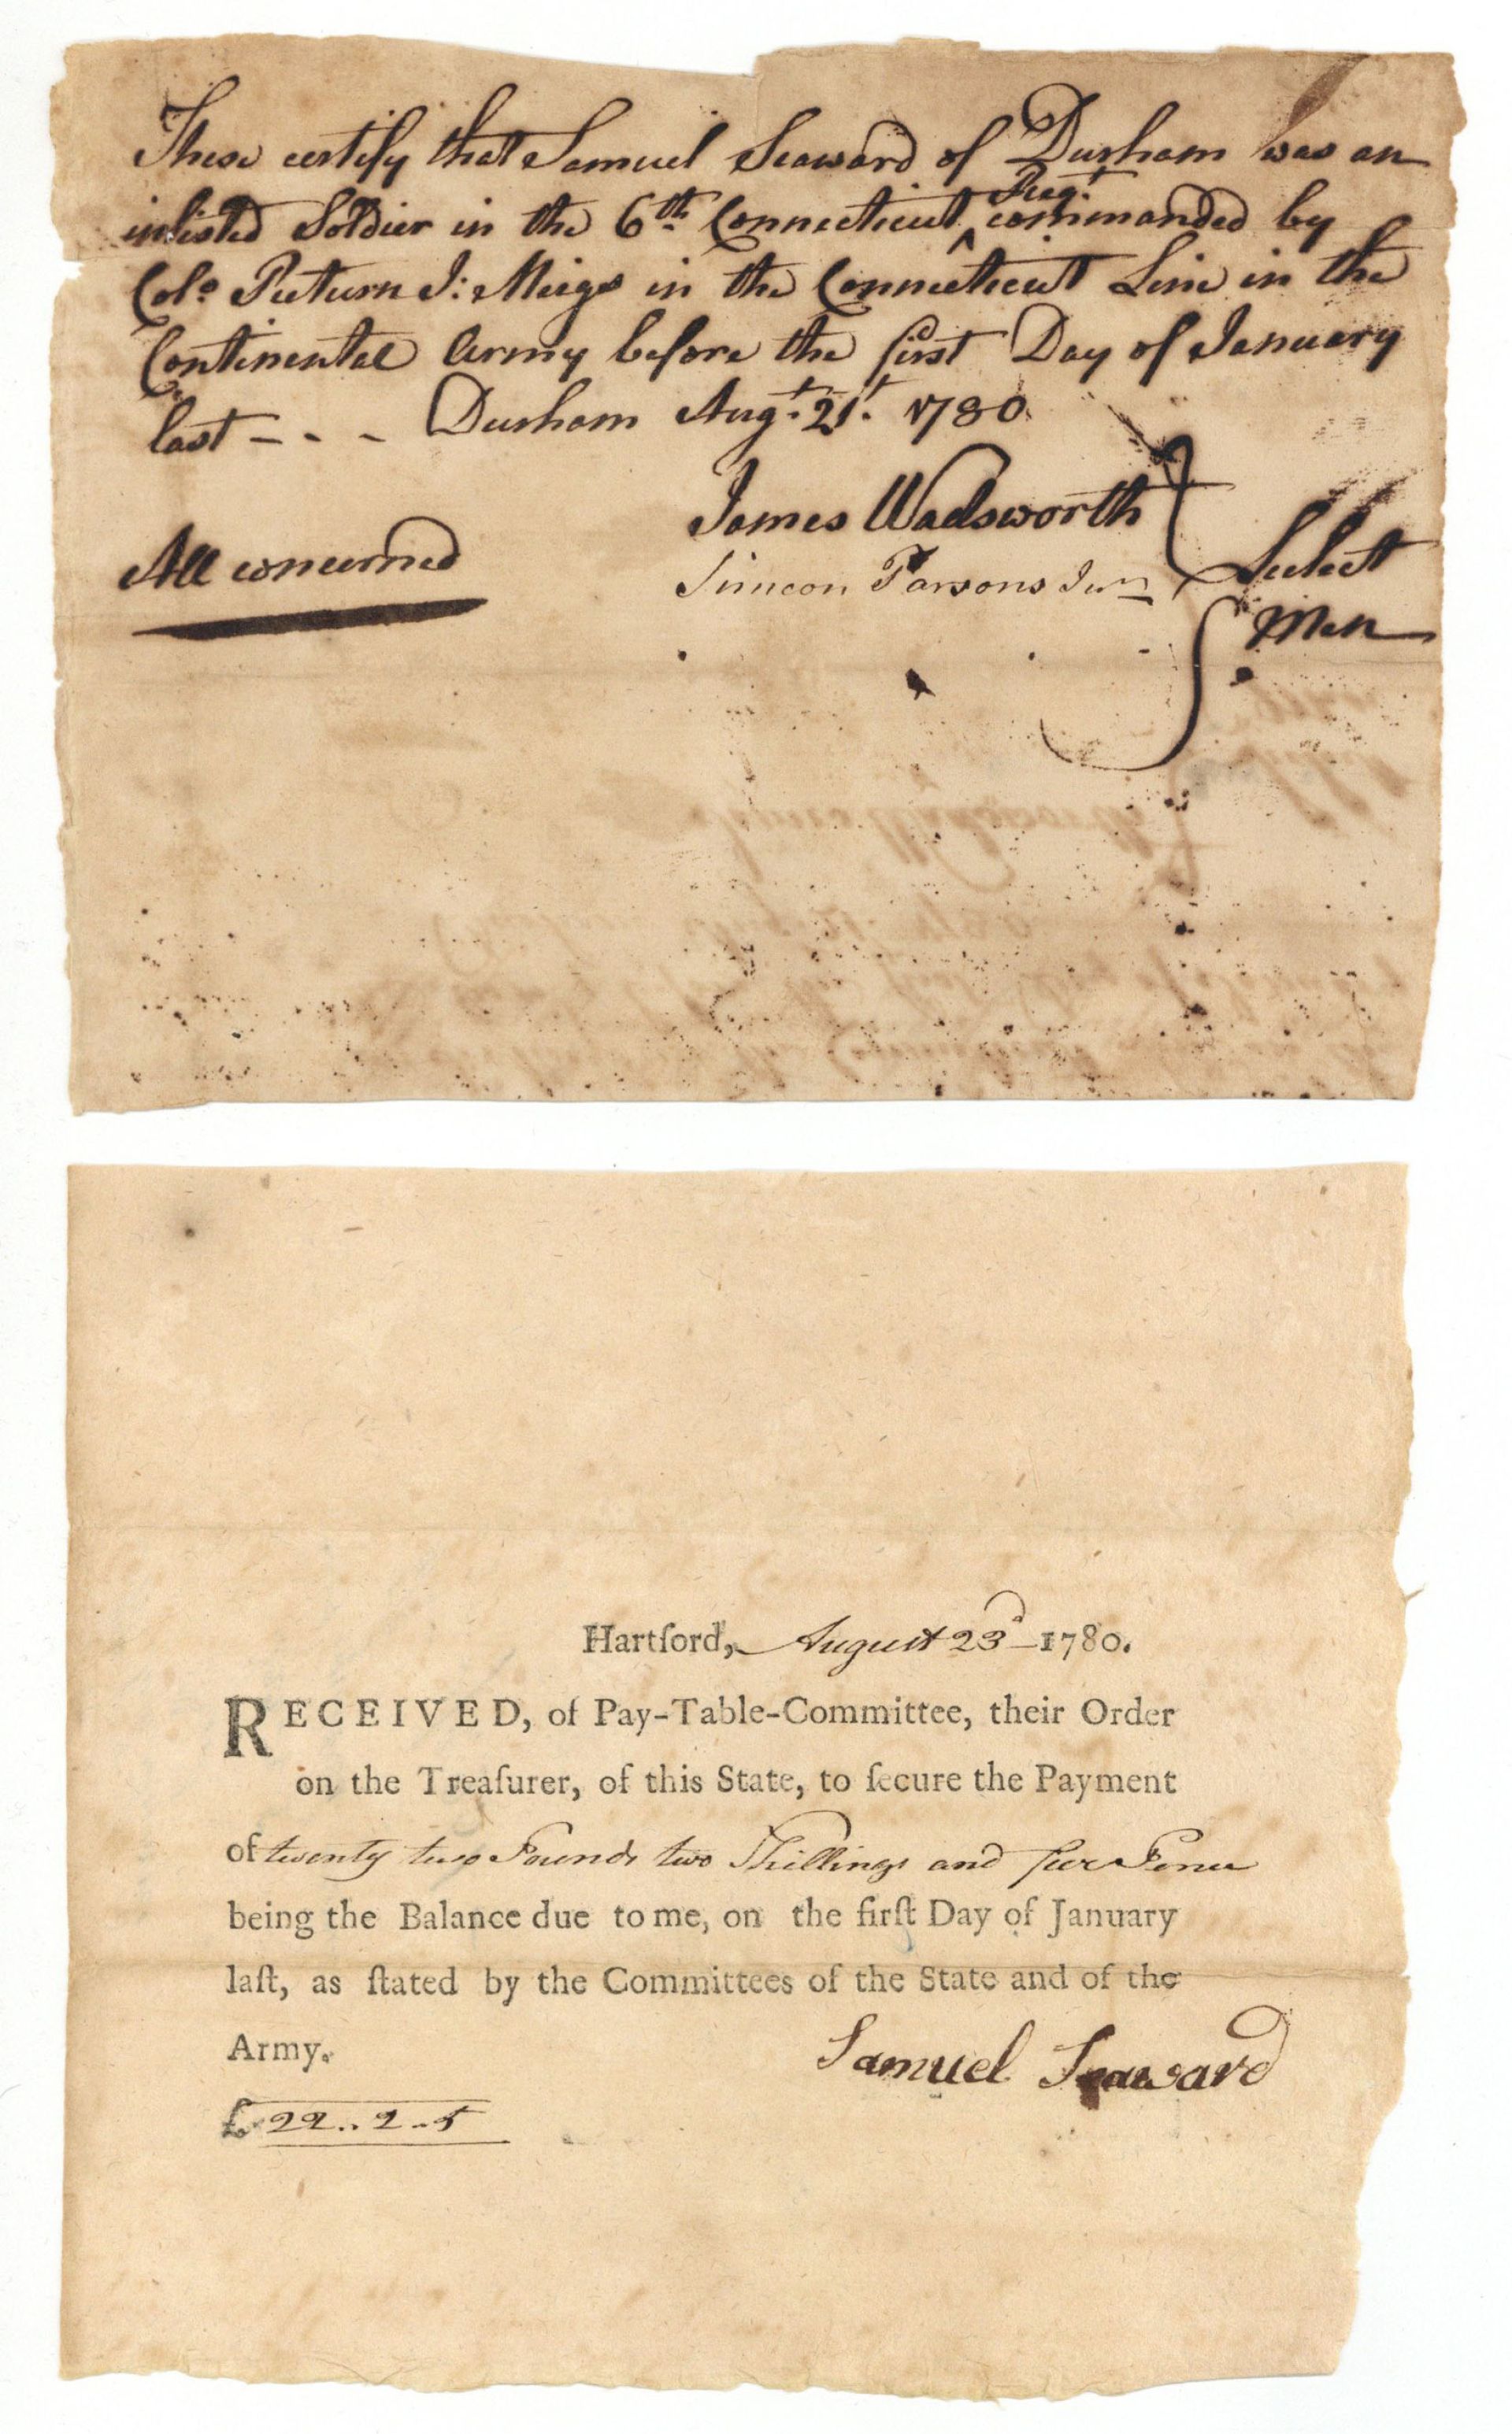 These certify that Samuel Seaward of Durham was an
inlisted Soldier in the 6th Connecticut ^ Regt. commanded by
Colo Return J: Meigs in the Connecticut Line in the
Continental Army before the first Day of January
last - - - Durham Augt. 21t. 1780
James Wadsworth
All concerned
Simeon Parsons Junr
Select
Men
Hartford, August 23d 1780.
RECEIVED, of Pay-Table-Committee, their Order
on the Treaſurer, of this State, to ſecure the Payment
of twenty two Pounds two Shillings and five Pence
being the Balance due to me, on the firſt Day of January
laſt, as ſtated by the Committees of the State and of the
Army.
Samuel Seaward
£ 22..2..5